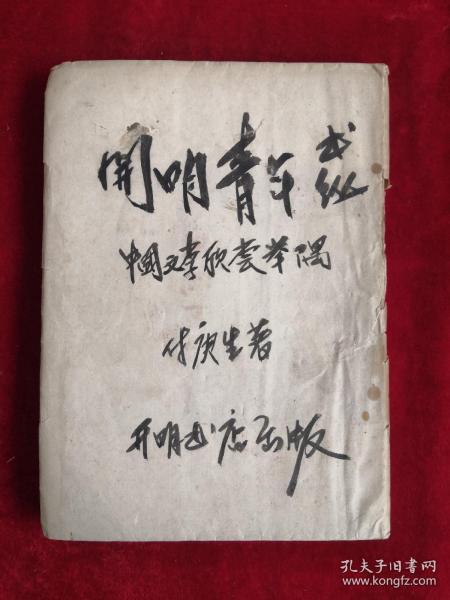 開明青年书丛
中國文学欣赏举隅
付庚生著
开明书店出版
孔夫子旧书网
www.kongfz.com